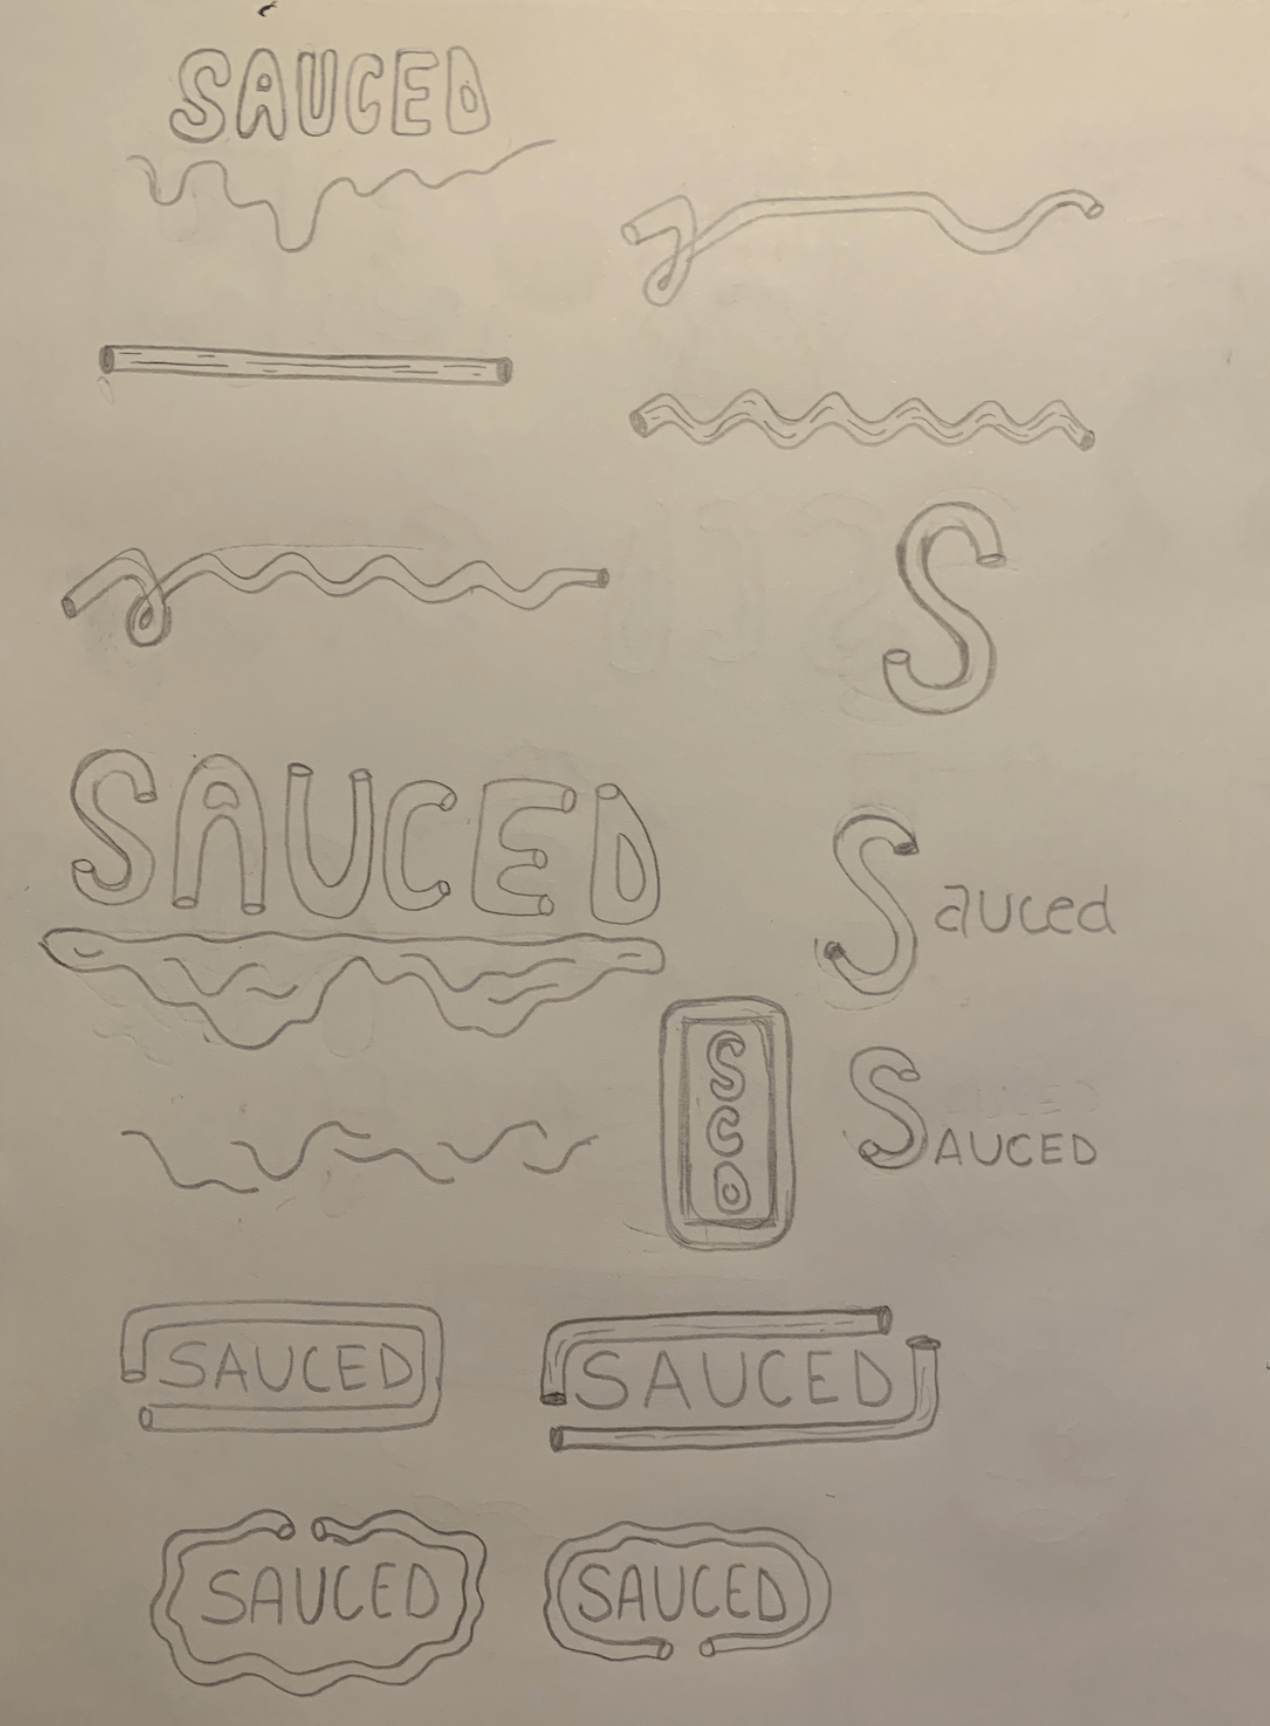 SAUCED
S
SAUCED
Sauced
SCD
SAUCED
SAUCED
SAUCED
SAUCED
SAUCED